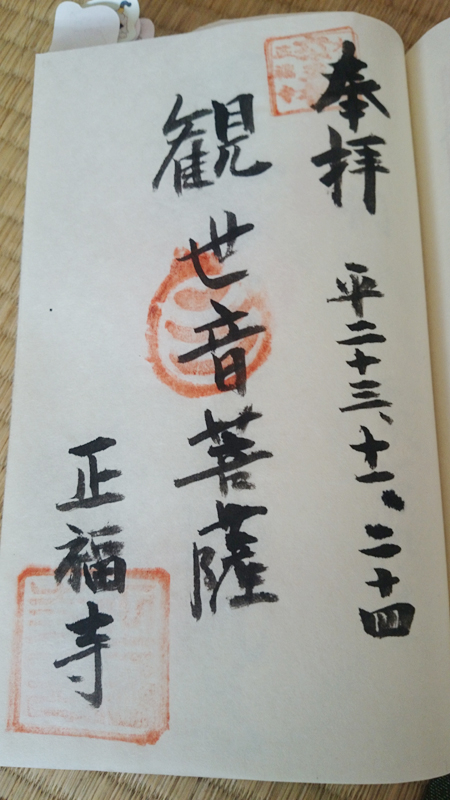 奉拝
平二十三、十一、二十四
観世音菩薩
正福寺